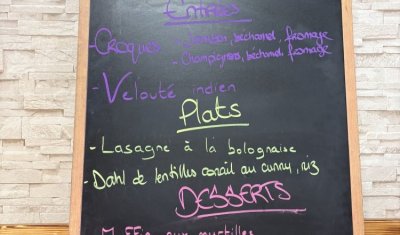 Entrées
- Croques - Jambon, béchamel, fromage
- Champignons, béchamel, fromage
- Velouté indien
Plats
- Lasagne à la bolognaise
- Dahl de lentilles corail au curry, riz
DESSERTS
- Muffin aux myrtilles